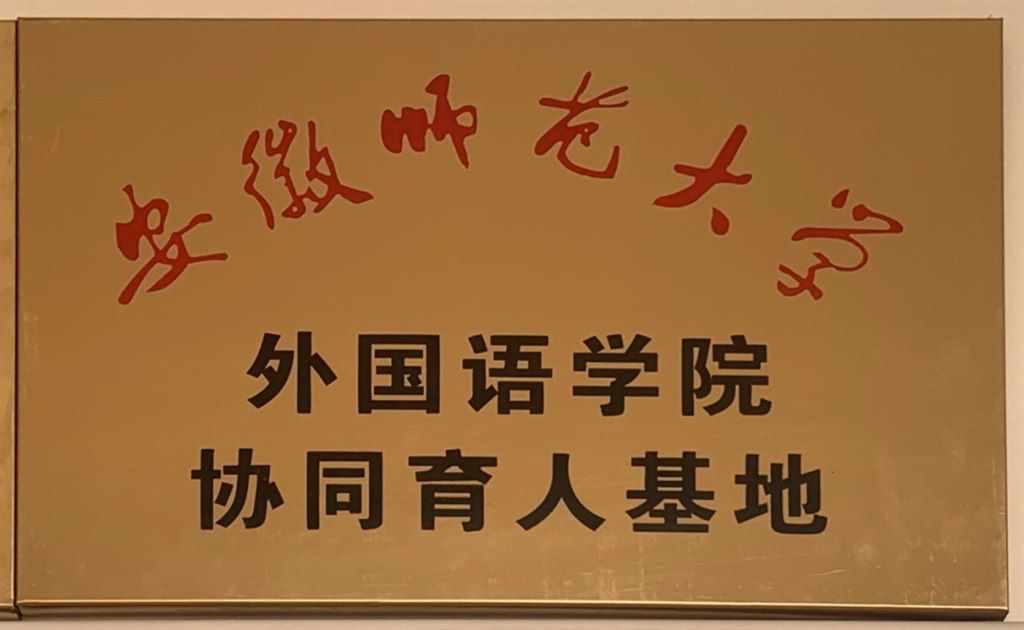 安徽师范大学
外国语学院
协同育人基地